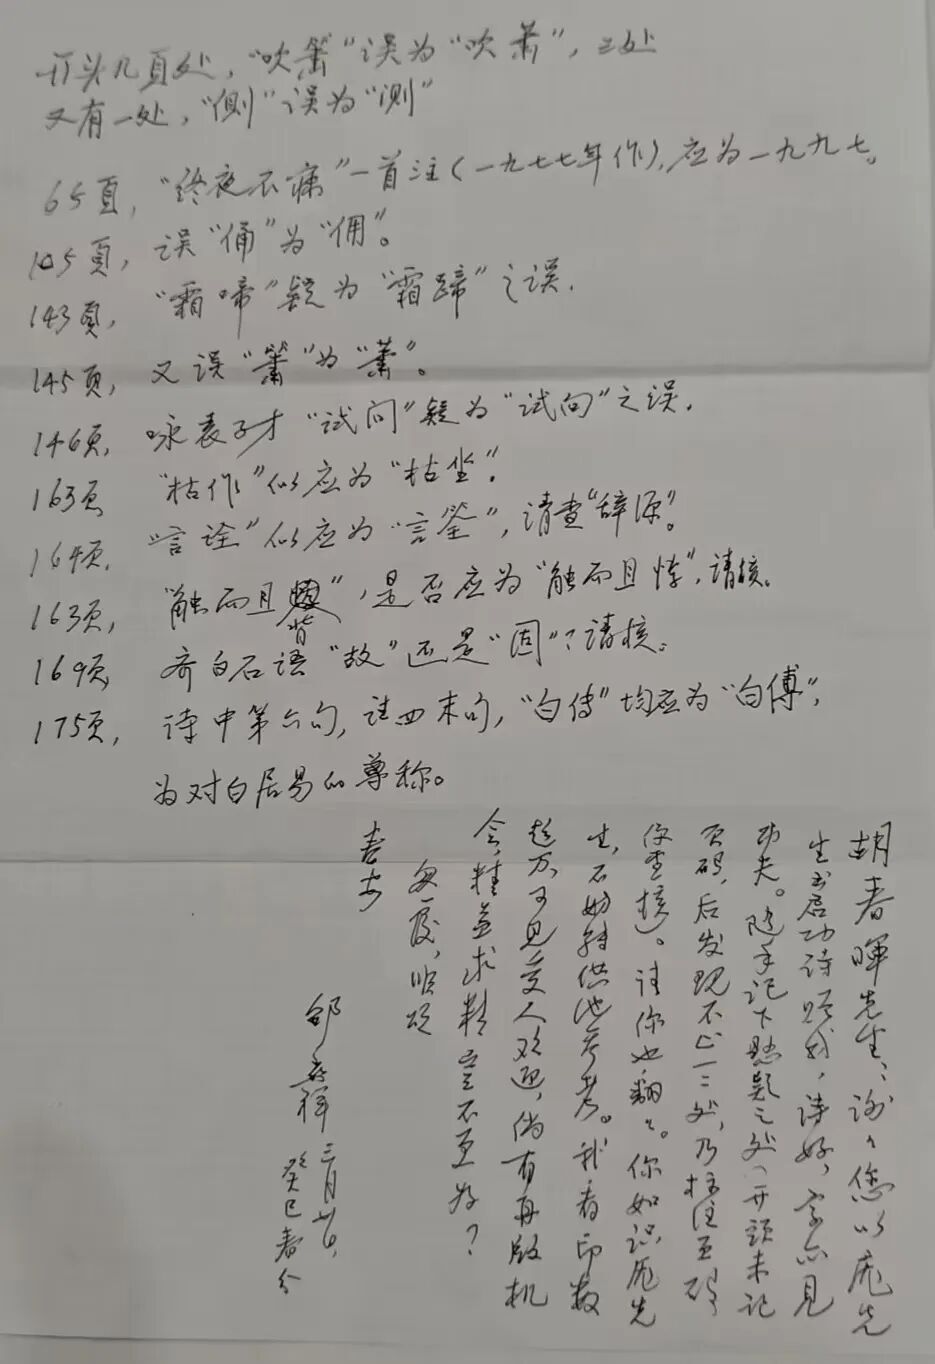 开头几頁处，“吹箫”误为“吹萧”，二处
又有一处，“侧”误为“测”
65頁，“终夜不痛”一首注（一九七七年作），应为一九九七。
145頁，误“俑”为“佣”。
143頁，“霜啼”疑为“霜蹄”之误．
145页，又误“箫”为“萧”。
146页，咏袁子才“试问”疑为“试向”之误．
163页 “枯作”似应为“枯坐”．
164页．“言诠”似应为“言筌”，请查“辞源”。
163页，“触而且背”，是否应为“触而且悖”，请核．
169页，齐白石语“故”还是“固”？请核．
175页，诗中第六句，注四末句，“白傅”均应为“白傅”，
为对白居易的尊称。
胡春暉先生：谢々您以庞先
生书启功诗赐我，诗好，字亦见
功夫。随手记下懸疑之处（开頭未记
页码，后发现不止一二处，乃标注页码
供查核）。请你也翻々。你如识庞先
生，不妨转供他参考。我看印数
超万，可见受人欢迎，倘有再版机
会，精益求精，岂不更好？
匆复，順頌
春安
邵燕祥 三月廿日，
癸巳春分